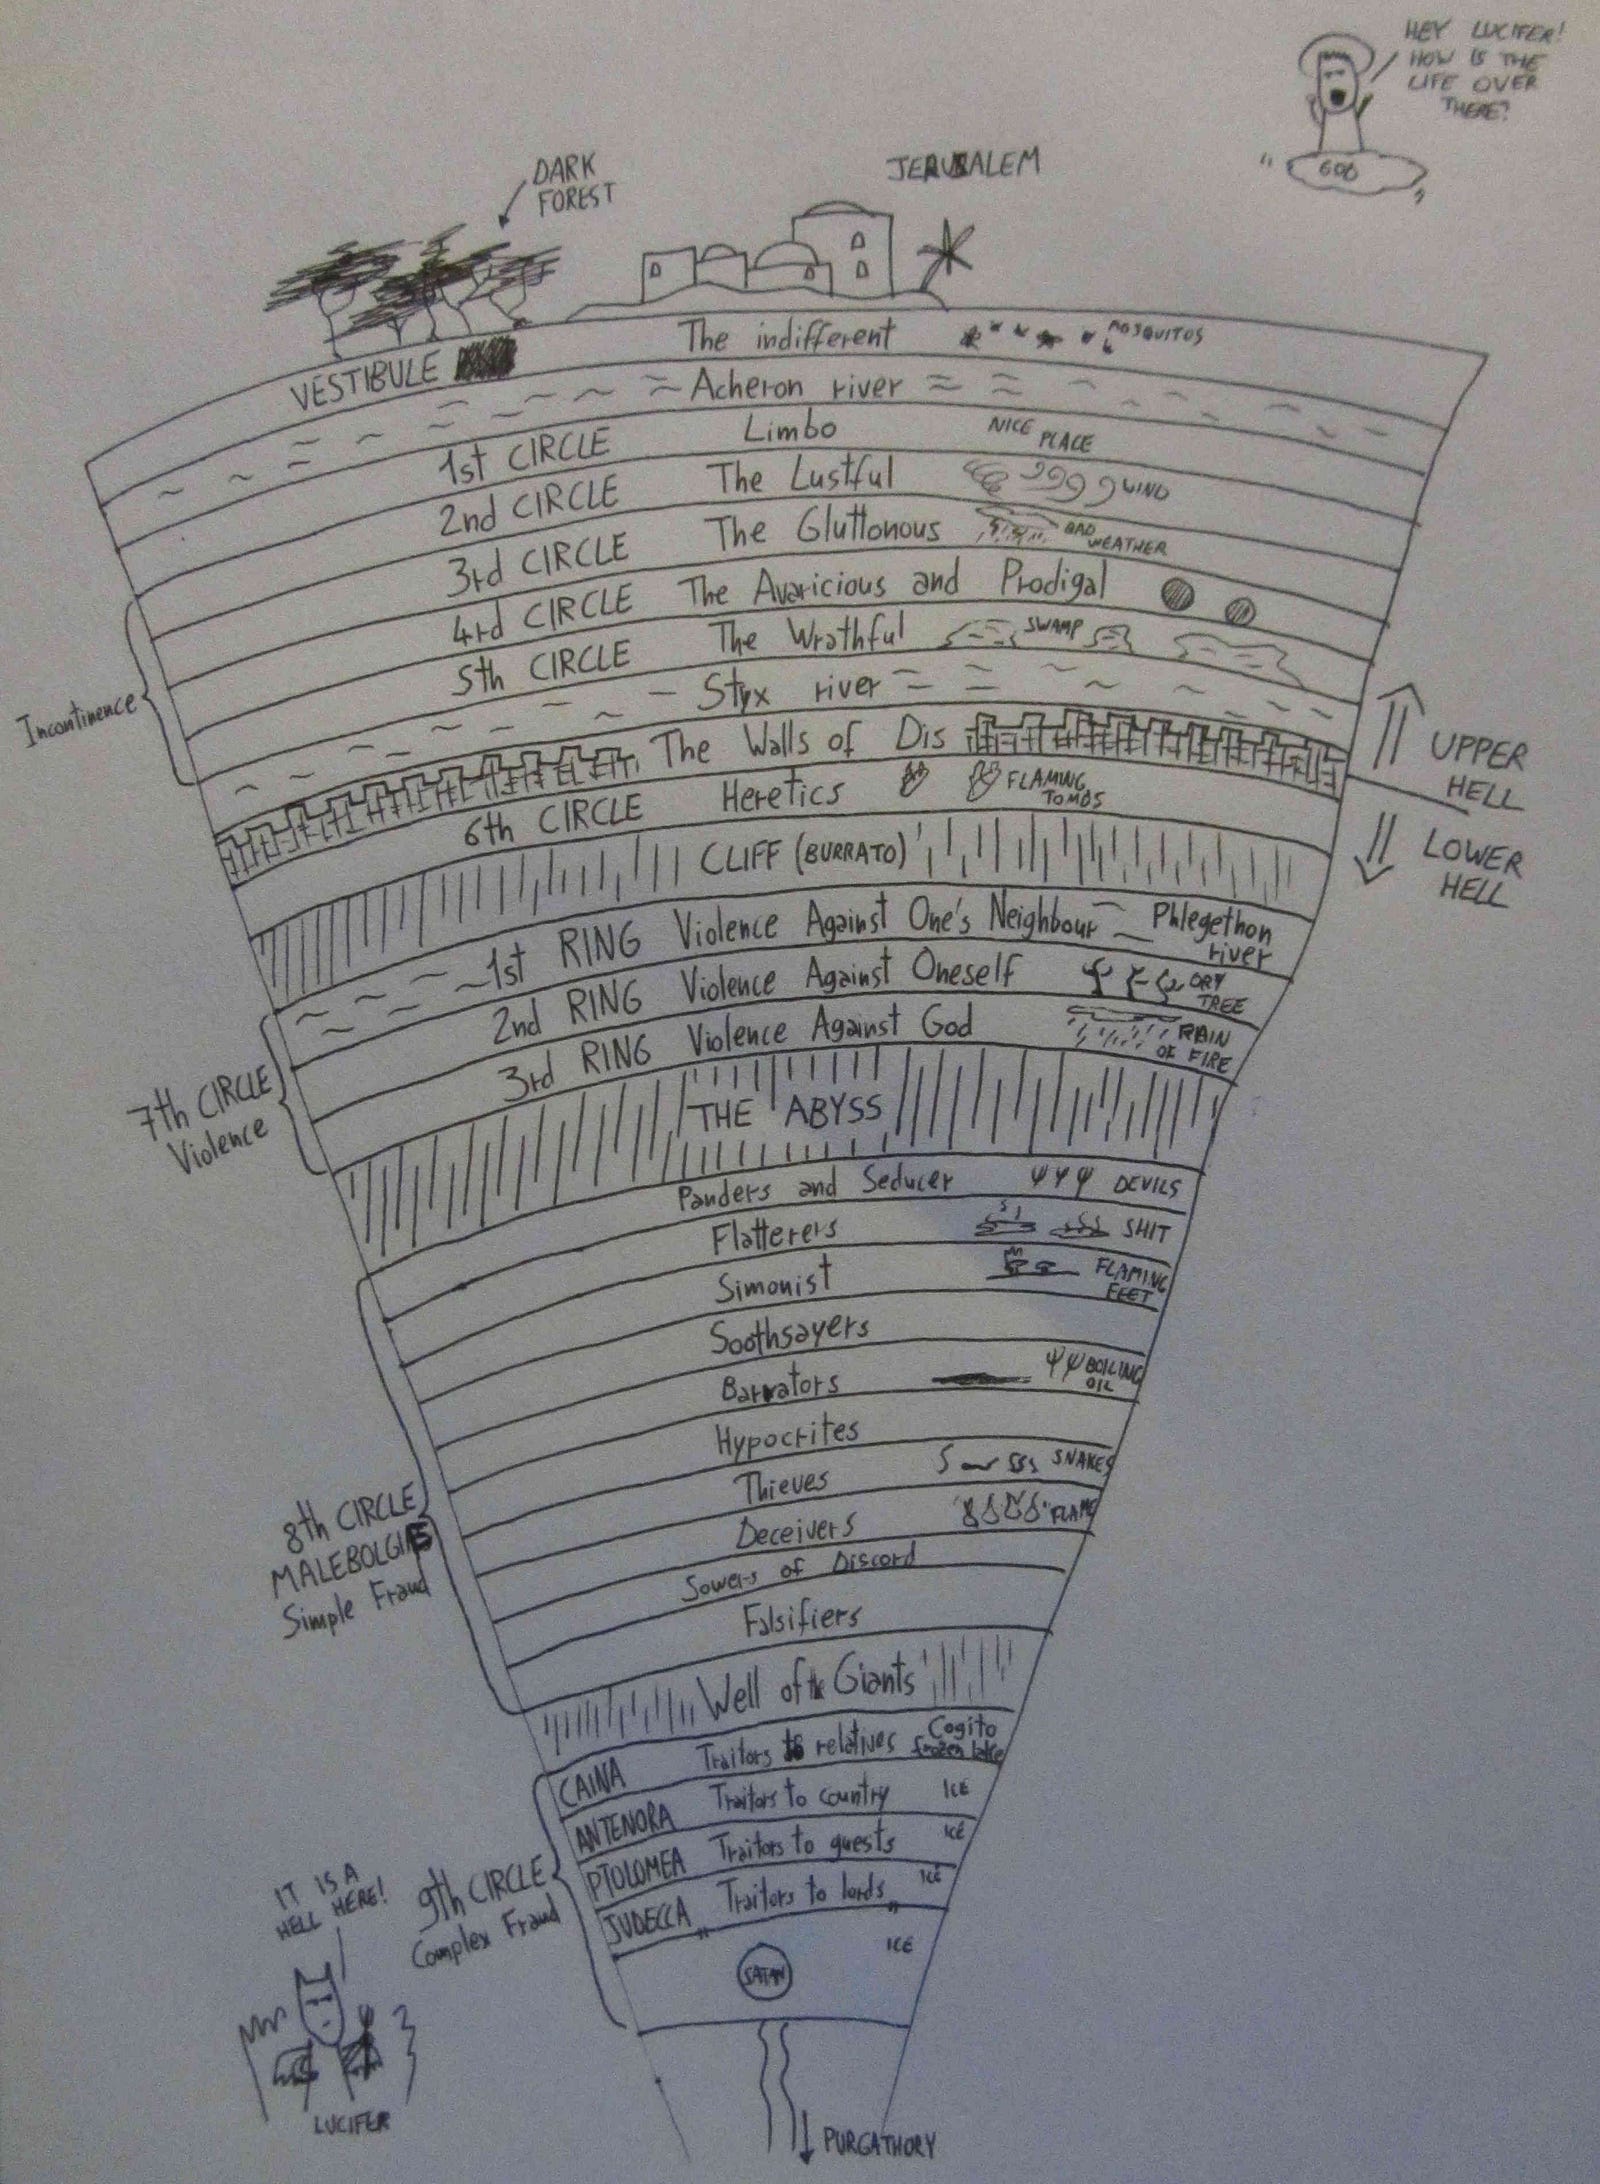 HEY LUCIFER!
HOW IS THE
LIFE OVER
THERE?
GOD
DARK
FOREST
JERUSALEM
VESTIBULE The indifferent MOSQUITOS
Acheron river
1st CIRCLE Limbo NICE PLACE
2nd CIRCLE The Lustful WIND
3rd CIRCLE The Gluttonous BAD
WEATHER
4rd CIRCLE The Avaricious and Prodigal
5th CIRCLE The Wrathful SWAMP
Incontinence
Styx river
The Walls of Dis
UPPER
HELL
6th CIRCLE Heretics FLAMING
TOMBS
LOWER
HELL
CLIFF (BURRATO)
1st RING Violence Against One's Neighbour Phlegethon
river
2nd RING Violence Against Oneself DRY
TREE
3rd RING Violence Against God RAIN
OF FIRE
7th CIRCLE
Violence
THE ABYSS
Panders and Seducer DEVILS
Flatterers SHIT
Simonist FLAMING
FEET
Soothsayers
Barrators BOILING
OIL
Hypocrites
Thieves SNAKES
Deceivers FLAME
Sowers of Discord
Falsifiers
8th CIRCLE
MALEBOLGIE
Simple Fraud
Well of the Giants
CAINA Traitors to relatives Cogito
frozen lake
ANTENORA Traitors to country ICE
PTOLOMEA Traitors to guests ICE
JUDECCA Traitors to lords ICE
9th CIRCLE
Complex Fraud
SATAN ICE
IT IS A
HELL HERE!
LUCIFER
PURGATHORY